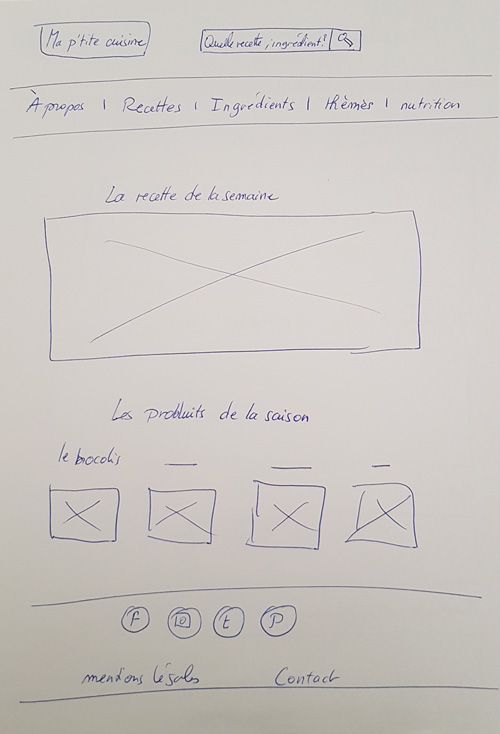 Ma p'tite cuisine
Quelle recette, ingrédient?
À propos | Recettes | Ingrédients | thèmès | nutrition
La recette de la semaine
Les produits de la saison
le brocolis
F t P
mentions légales Contact